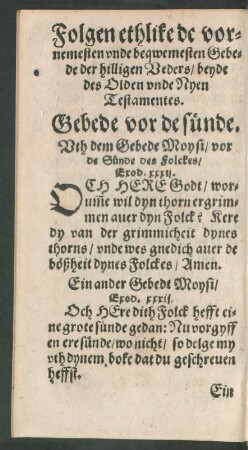 Folgen ethlike de vor-
nemesten vnde beqwemesten Gebe-
de der hilligen Veders / beyde
des Olden vnde Nyen
Testamentes.
Gebede vor de sünde.
Vth dem Gebede Moysi / vor
de Sünde des Folckes /
Exod. xxxij.
OCH HERE Godt / wor-
um̄e wil dyn thorn ergrim-
men auer dyn Folck? Kere
dy van der grimmicheit dynes
thorns / vnde wes gnedich auer de
bößheit dynes Folckes / Amen.
Ein ander Gebedt Moysi /
Exod. xxxij.
Och HEre dith Folck hefft ei-
ne grote sünde gedan: Nu vorgyff
en ere sünde / wo nicht / so delge my
vth dynem boke dat du geschreuen
heffst.
Ein